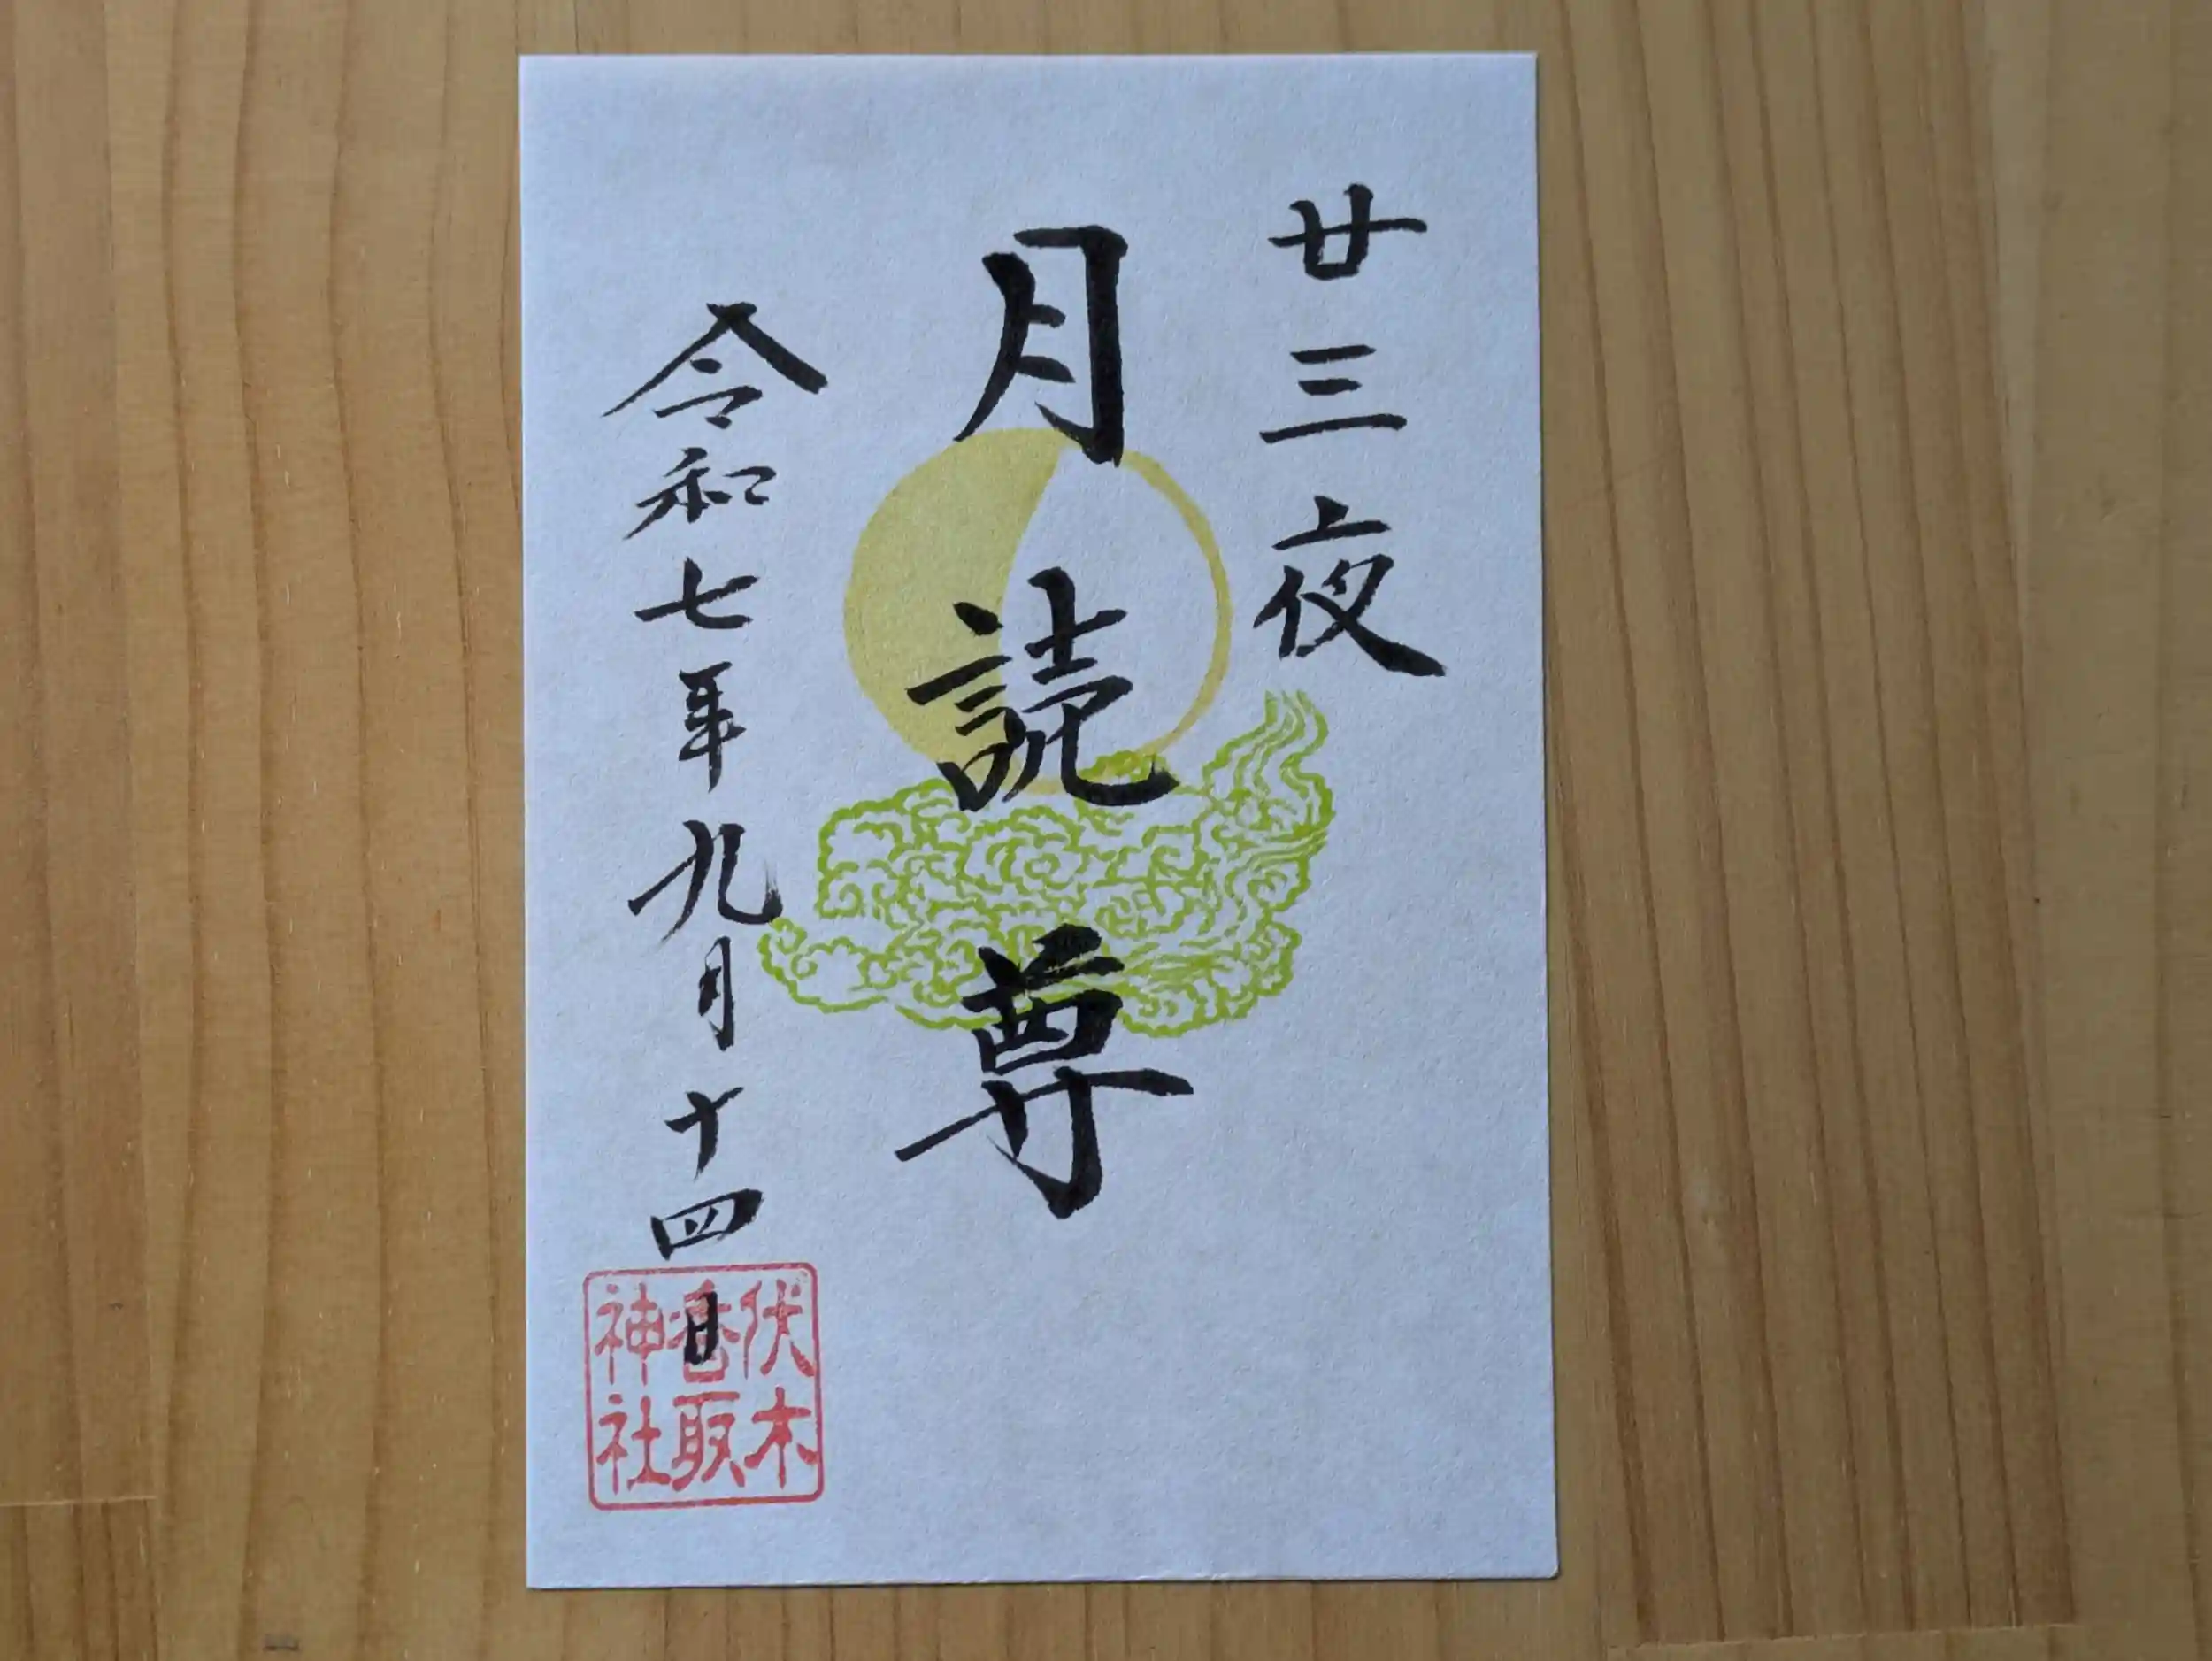 廿三夜
月読尊
令和七年九月十四日
伏木
香取
神社